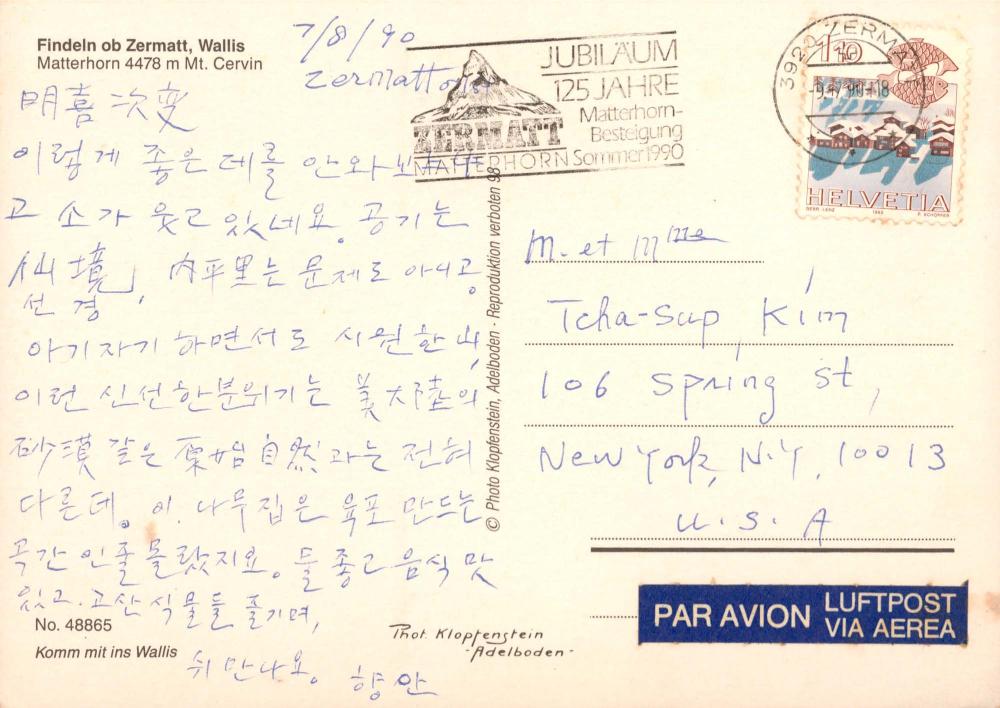 Findeln ob Zermatt, Wallis
Matterhorn 4478 m Mt. Cervin
7/8/90
Zermatt
明喜 次燮
이렇게 좋은데를 안와보
고 소가 웃고 있네요. 공기는
仙境, 內平里는 문제도 아니고.
선경
아기자기 하면서도 시원한 山,
이런 신선한 분위기는 美大陸의
砂漠 같은 原始自然과는 전혀
다른데. 이 나무집은 육포 만드는
곡간인줄 몰랐지요. 물 좋고 음식 맛
있고. 고산식물들 즐기며,
쉬 만나요. 향안
No. 48865
Komm mit ins Wallis
Phot. Klopfenstein
- Adelboden -
© Photo Klopfenstein, Adelboden - Reproduktion verboten 98
JUBILÄUM
125 JAHRE
Matterhorn-
Besteigung
Sommer 1990
ZERMATT
MATTERHORN
3920 ZERMATT
-18
110
HELVETIA
1982
M. et Mme
Tcha-Sup Kim
106 Spring St,
New York, N.Y. 10013
U.S.A
PAR AVION
LUFTPOST
VIA AEREA